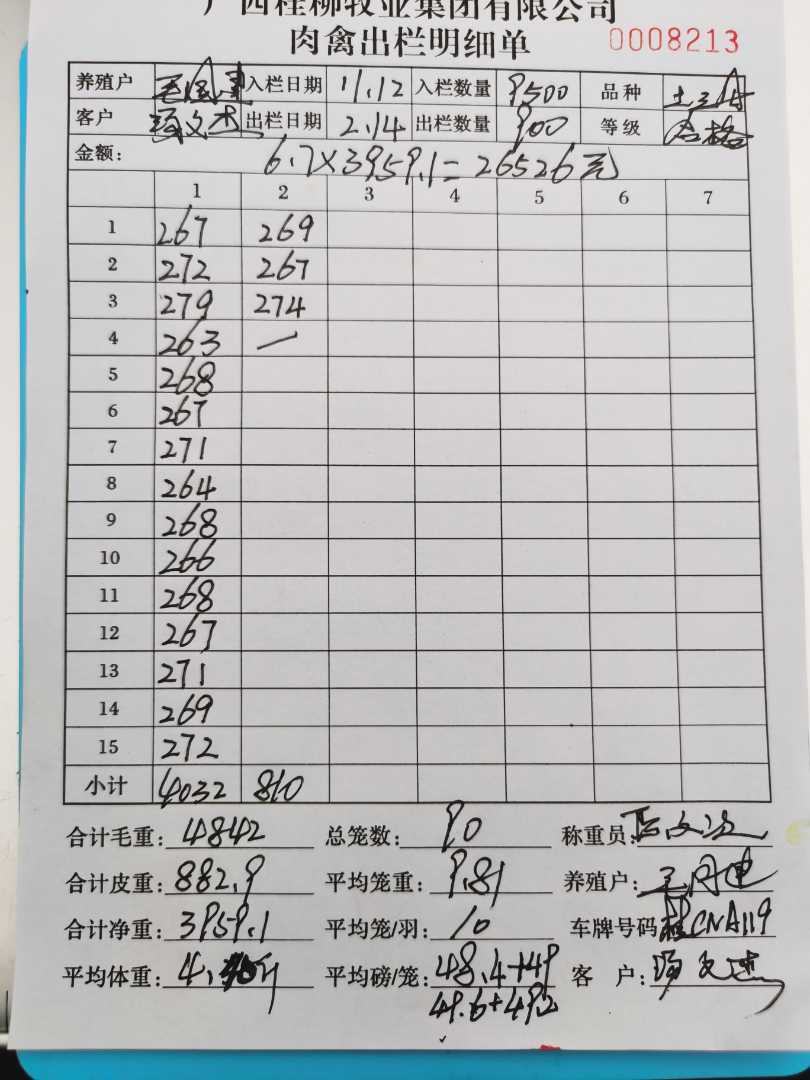 广西桂柳牧业集团有限公司
肉禽出栏明细单 0008213
养殖户 入栏日期 11.12 入栏数量 9500 品种
客户 出栏日期 2.14 出栏数量 900 等级 合格
金额: 6.7×3959.1=26526元
1 2 3 4 5 6 7
1 267 269
2 272 267
3 279 274
4 263 —
5 268
6 267
7 271
8 264
9 268
10 266
11 268
12 267
13 271
14 269
15 272
小计 4032 810
合计毛重: 4842 总笼数: 90 称重员:
合计皮重: 882.9 平均笼重: 9.81 养殖户:
合计净重: 3959.1 平均笼/羽: 10 车牌号码 桂CNA119
平均体重: 4. 平均磅/笼: 48.4+49 客 户:
49.6+49.2